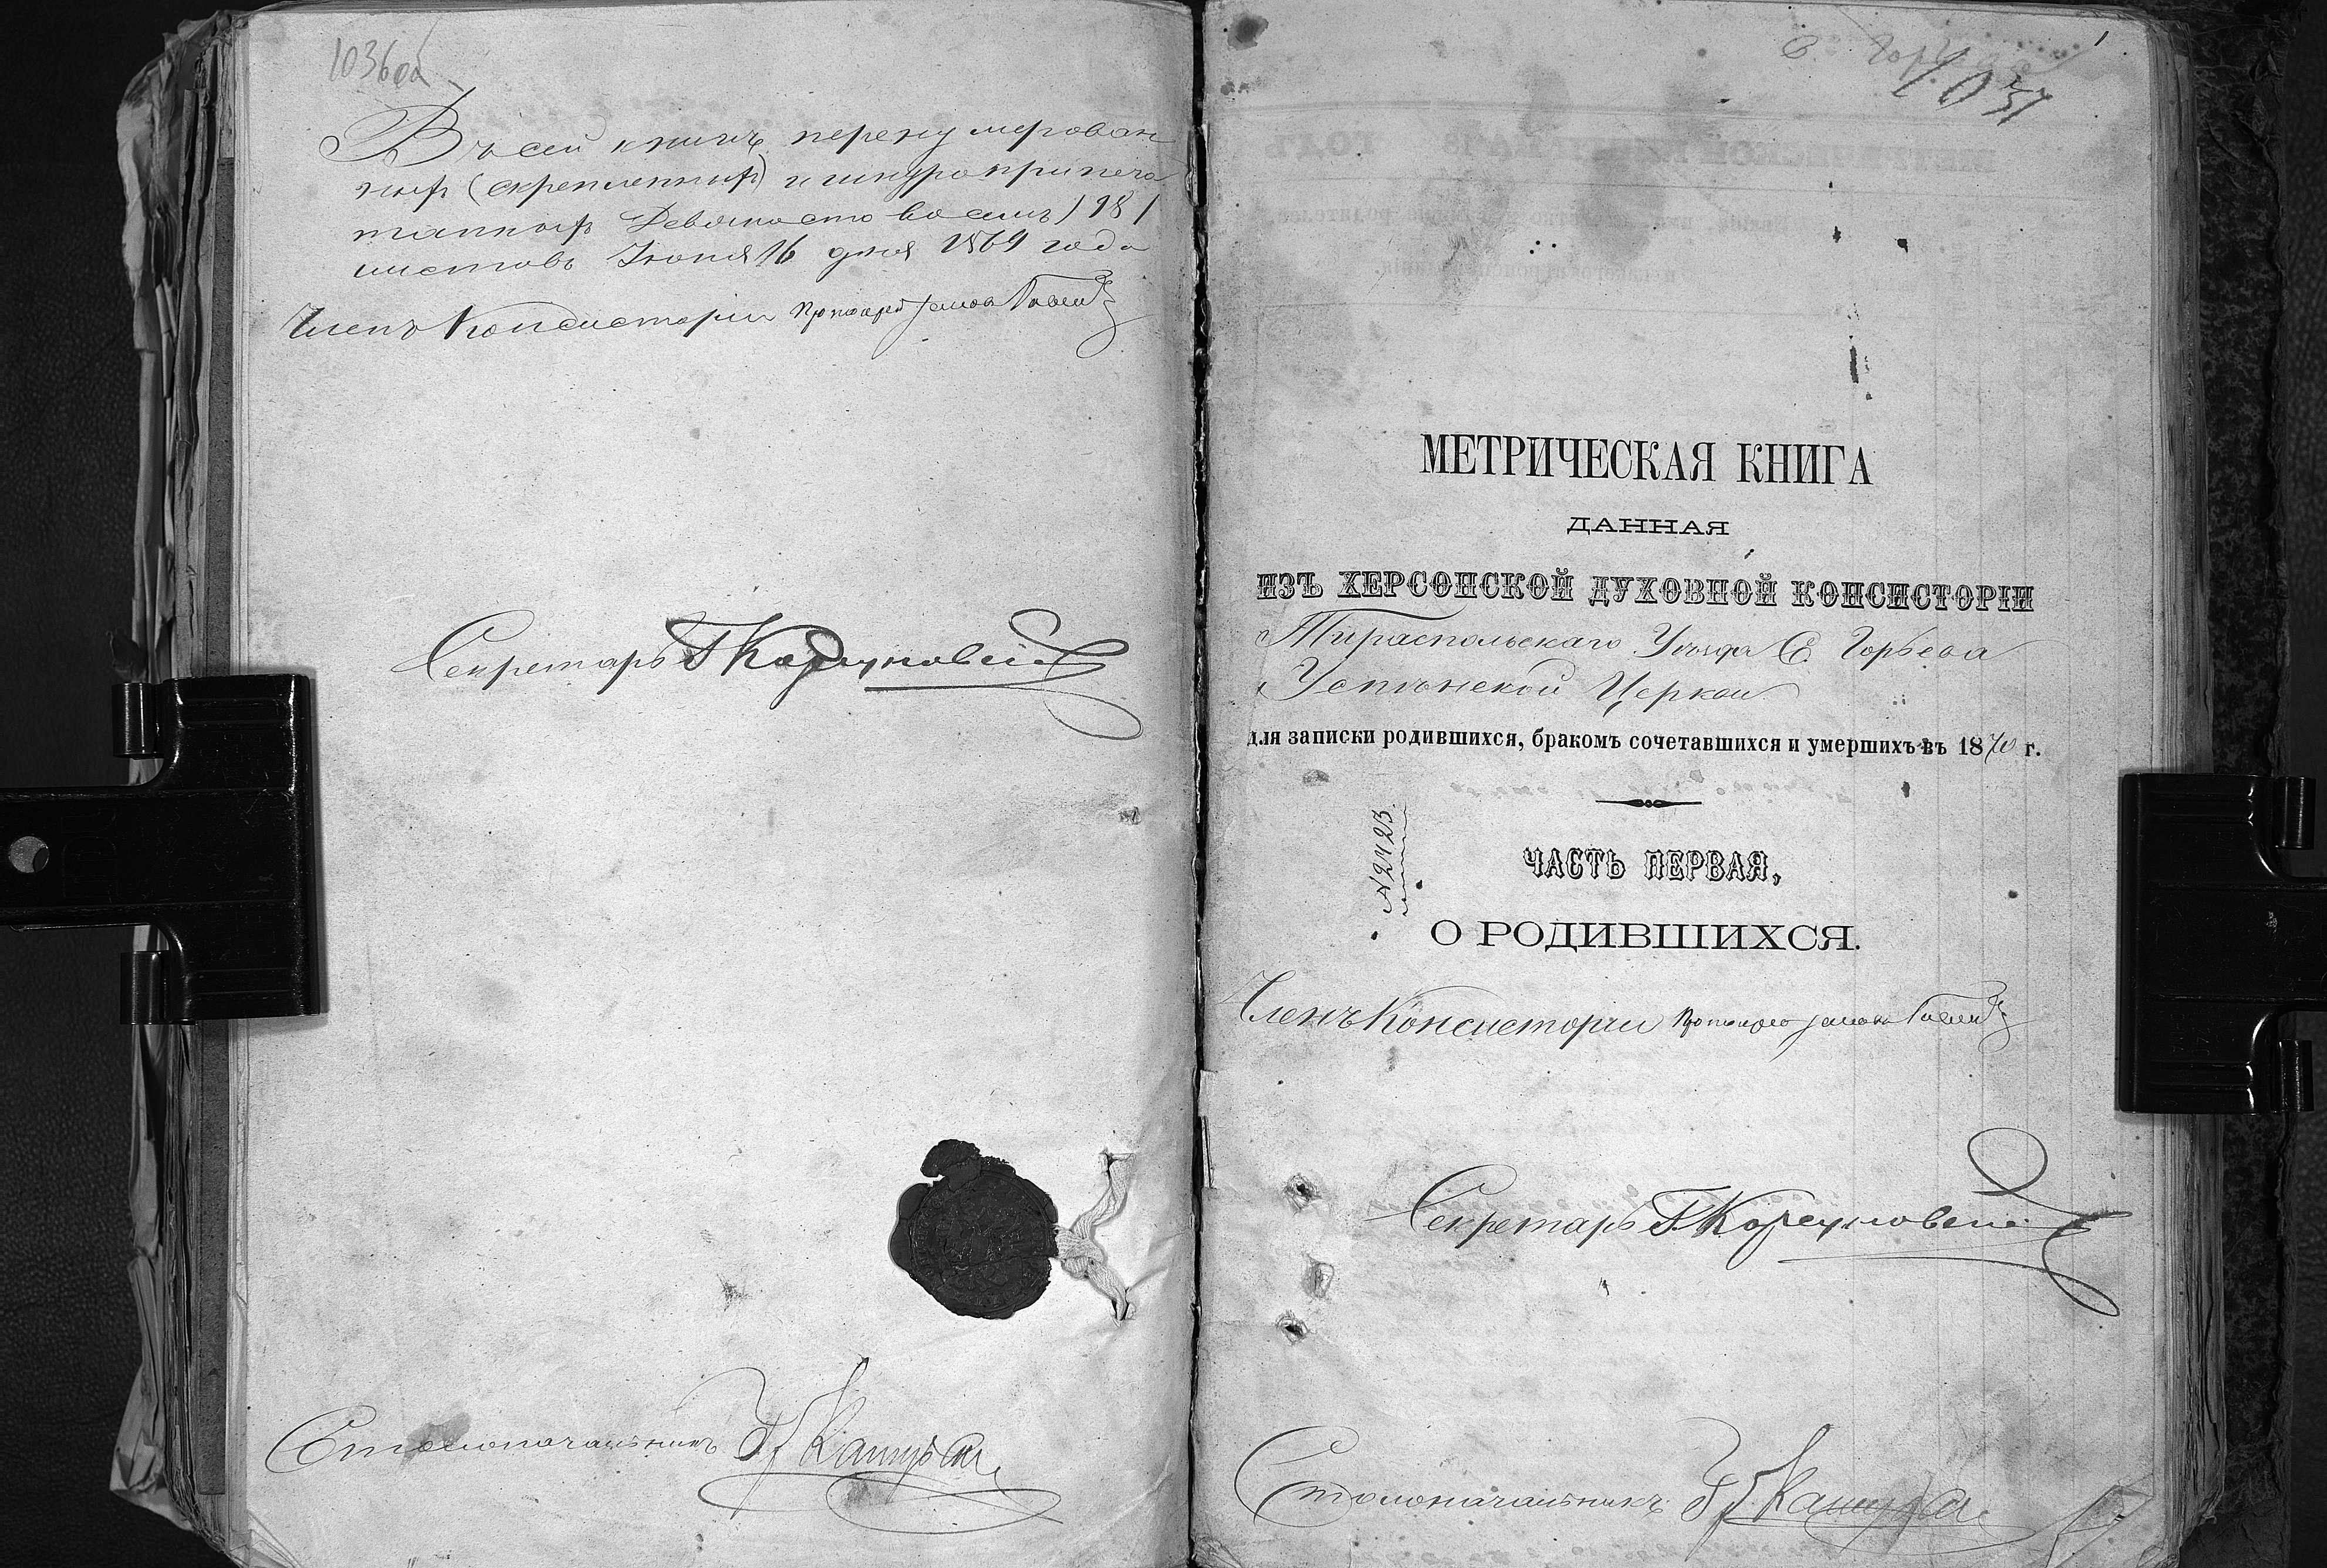 1036об
Въ сей книгѣ перенумерован
ныхъ (скрепленныхъ) и шнуроприпеча
танныхъ Девяносто восемь /98/
листовъ Іюня 16 дня 1869 года
Членъ Консисторіи Протоіерей
Секретарь
Столоначальникъ
1
С. Горьева
1037
МЕТРИЧЕСКАЯ КНИГА
ДАННАЯ
ИЗЪ ХЕРСОНСКОЙ ДУХОВНОЙ КОНСИСТОРІИ
Тираспольскаго Уѣзда С. Горьева
Успѣнской Церкви
для записки родившихся, бракомъ сочетавшихся и умершихъ въ 1870 г.
№ 2423
ЧАСТЬ ПЕРВАЯ,
О РОДИВШИХСЯ.
Членъ Консисторіи Протоіерей
Секретарь
Столоначальникъ